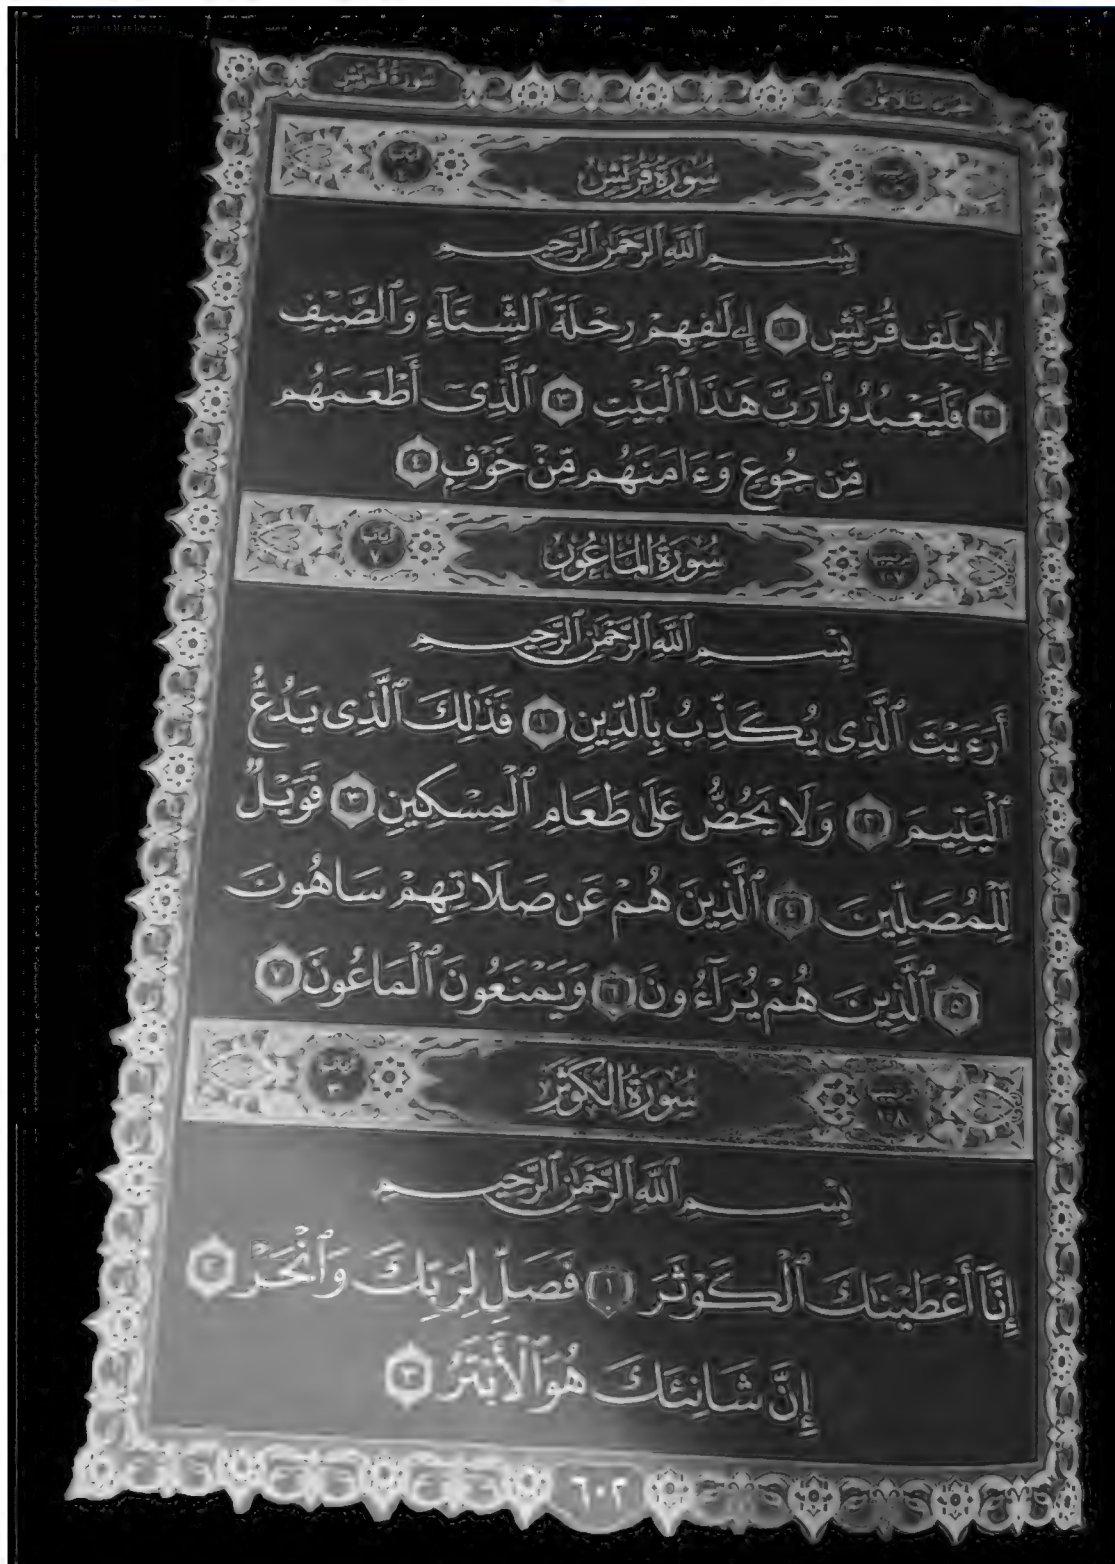 سُورَةُ قُرَيْشٍ
سُورَةُ قُرَيْشٍ
بِسْمِ ٱللَّهِ ٱلرَّحْمَٰنِ ٱلرَّحِيمِ
لِإِيلَٰفِ قُرَيْشٍ ١ إِۦلَٰفِهِمْ رِحْلَةَ ٱلشِّتَآءِ وَٱلصَّيْفِ
٢ فَلْيَعْبُدُوا۟ رَبَّ هَٰذَا ٱلْبَيْتِ ٣ ٱلَّذِىٓ أَطْعَمَهُم
مِّن جُوعٍ وَءَامَنَهُم مِّنْ خَوْفٍۭ ٤
سُورَةُ الْمَاعُونِ آيَاتُهَا ٧
بِسْمِ ٱللَّهِ ٱلرَّحْمَٰنِ ٱلرَّحِيمِ
أَرَءَيْتَ ٱلَّذِى يُكَذِّبُ بِٱلدِّينِ ١ فَذَٰلِكَ ٱلَّذِى يَدُعُّ
ٱلْيَتِيمَ ٢ وَلَا يَحُضُّ عَلَىٰ طَعَامِ ٱلْمِسْكِينِ ٣ فَوَيْلٌ
لِّلْمُصَلِّينَ ٤ ٱلَّذِينَ هُمْ عَن صَلَاتِهِمْ سَاهُونَ
٥ ٱلَّذِينَ هُمْ يُرَآءُونَ ٦ وَيَمْنَعُونَ ٱلْمَاعُونَ ٧
سُورَةُ الْكَوْثَرِ
بِسْمِ ٱللَّهِ ٱلرَّحْمَٰنِ ٱلرَّحِيمِ
إِنَّآ أَعْطَيْنَٰكَ ٱلْكَوْثَرَ ١ فَصَلِّ لِرَبِّكَ وَٱنْحَرْ ٢
إِنَّ شَانِئَكَ هُوَ ٱلْأَبْتَرُ ٣
٦٠٢